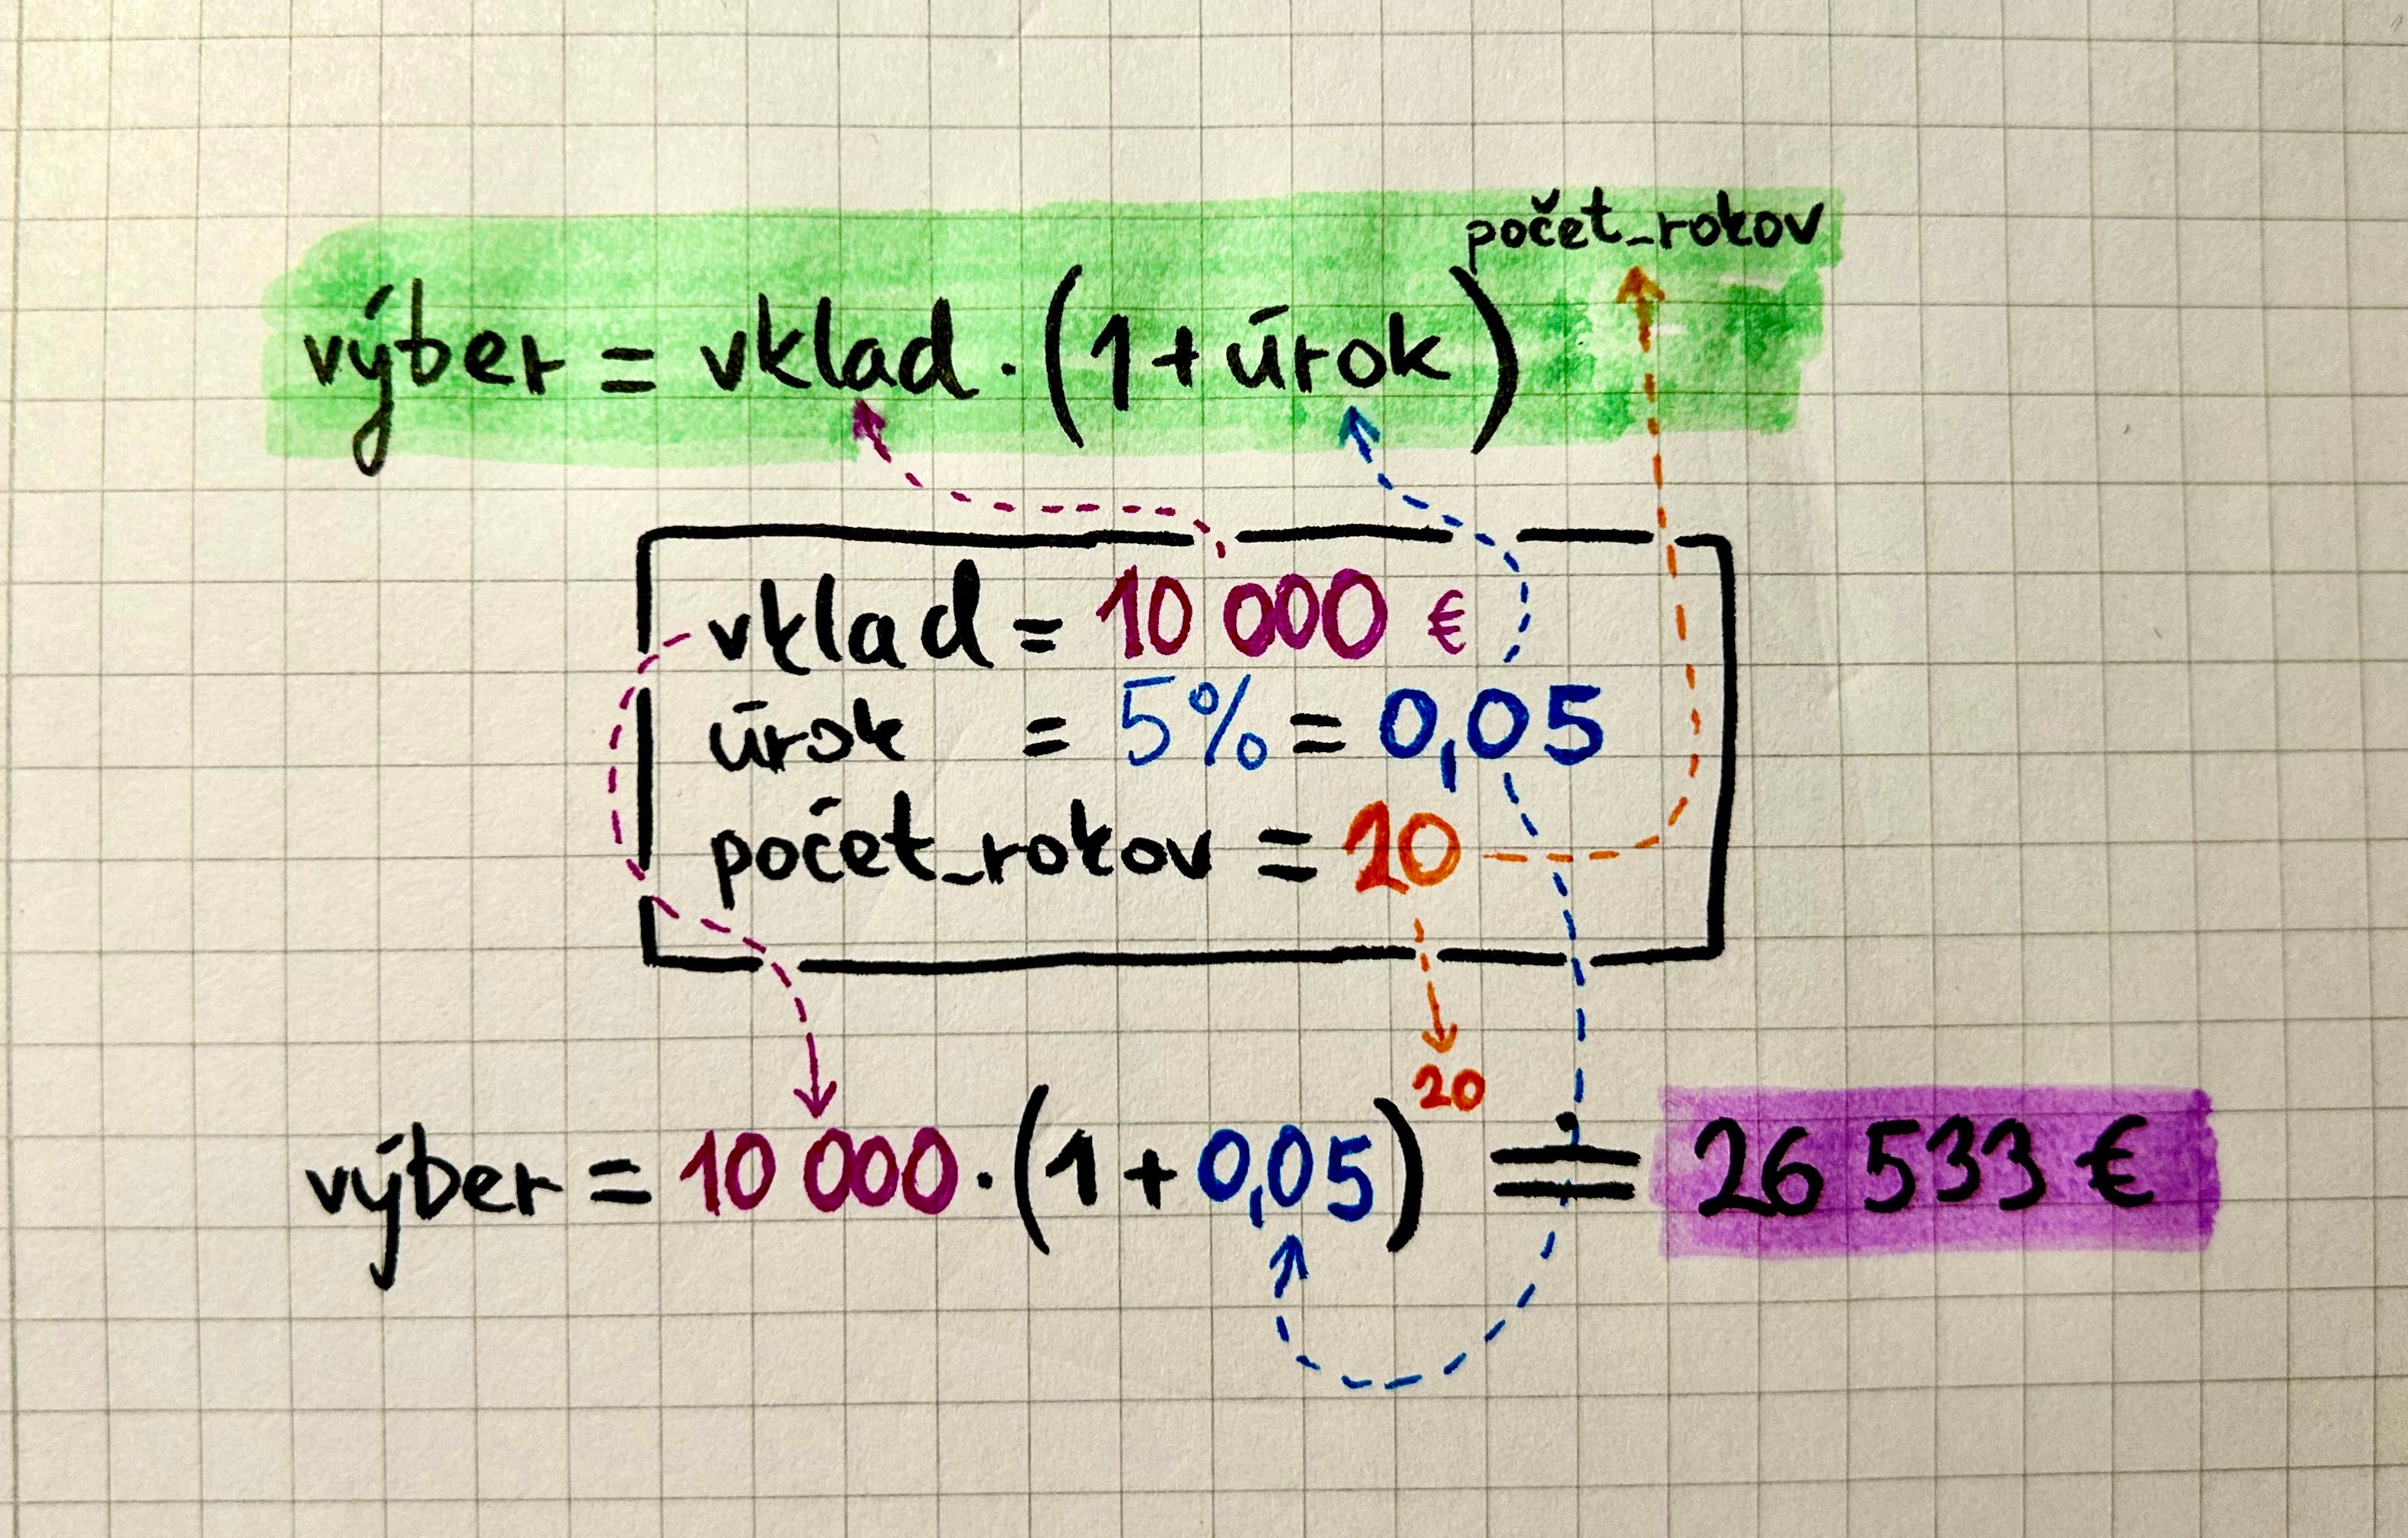 výber = vklad · (1 + úrok)^počet_rokov
vklad = 10 000 €
úrok = 5% = 0,05
počet_rokov = 20
výber = 10 000 · (1 + 0,05)^20 ≐ 26 533 €